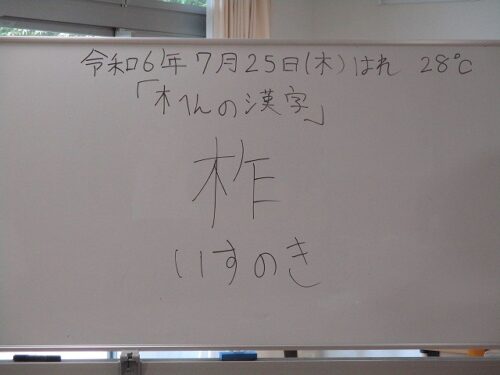 令和6年7月25日(木)はれ 28℃
「木へんの漢字」
柞
いすのき